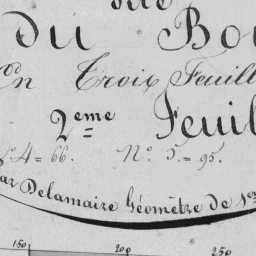 dite
du Bo
En Trois Feuill
2.eme Feuil
N.os 4 = 66. N.o 5 = 95.
par Delamaire Géomètre de 1.re
150 200 250